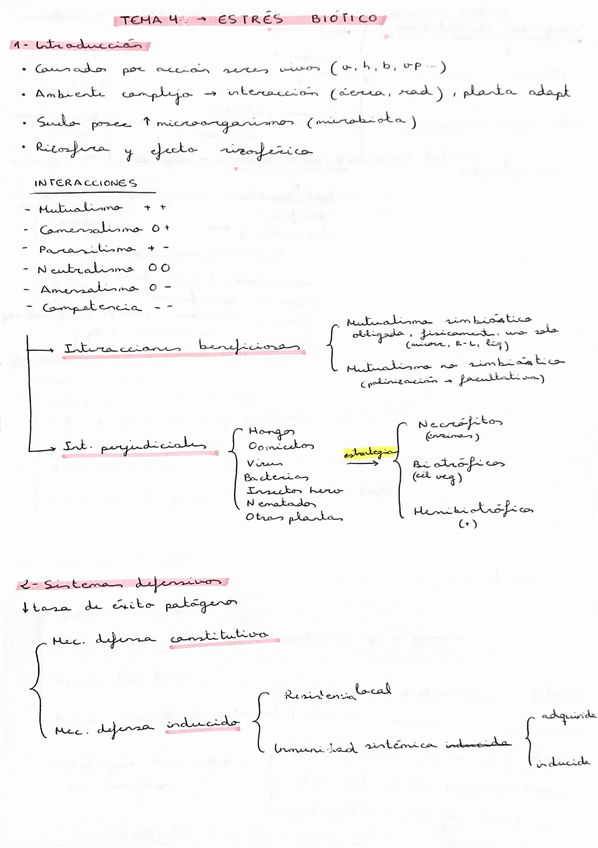 TEMA 4 → ESTRÉS BIÓTICO
1- Introducción
• Causados por acción seres vivos (v, h, b, vp...)
• Ambiente complejo → interacción (aérea, rad), planta adapt
• Suelo posee ↑ microorganismos (microbiota)
• Rizosfera y efecto rizosférico
INTERACCIONES
- Mutualismo + +
- Comensalismo 0 +
- Parasitismo + -
- Neutralismo 0 0
- Amensalismo 0 -
- Competencia - -
Interacciones beneficiosas
Mutualismo simbióstico
obligada, físicament. una sola
(micorr, R-L, líq)
Mutualismo no simbióstico
(polinización → facultativa)
Int. perjudiciales
Hongos
Oomicetos
Virus
Bacterias
Insectos herv
Nematodos
Otras plantas
estrategia
→
Necrófitos
(enzimas)
Biotróficos
(cél veg)
Hemibiotróficos
(+)
2- Sistemas defensivos
↓ tasa de éxito patógenos
Mec. defensa constitutivo
Mec. defensa inducido
Resistencia local
Inmunidad sistémica inducida
adquirida
inducida